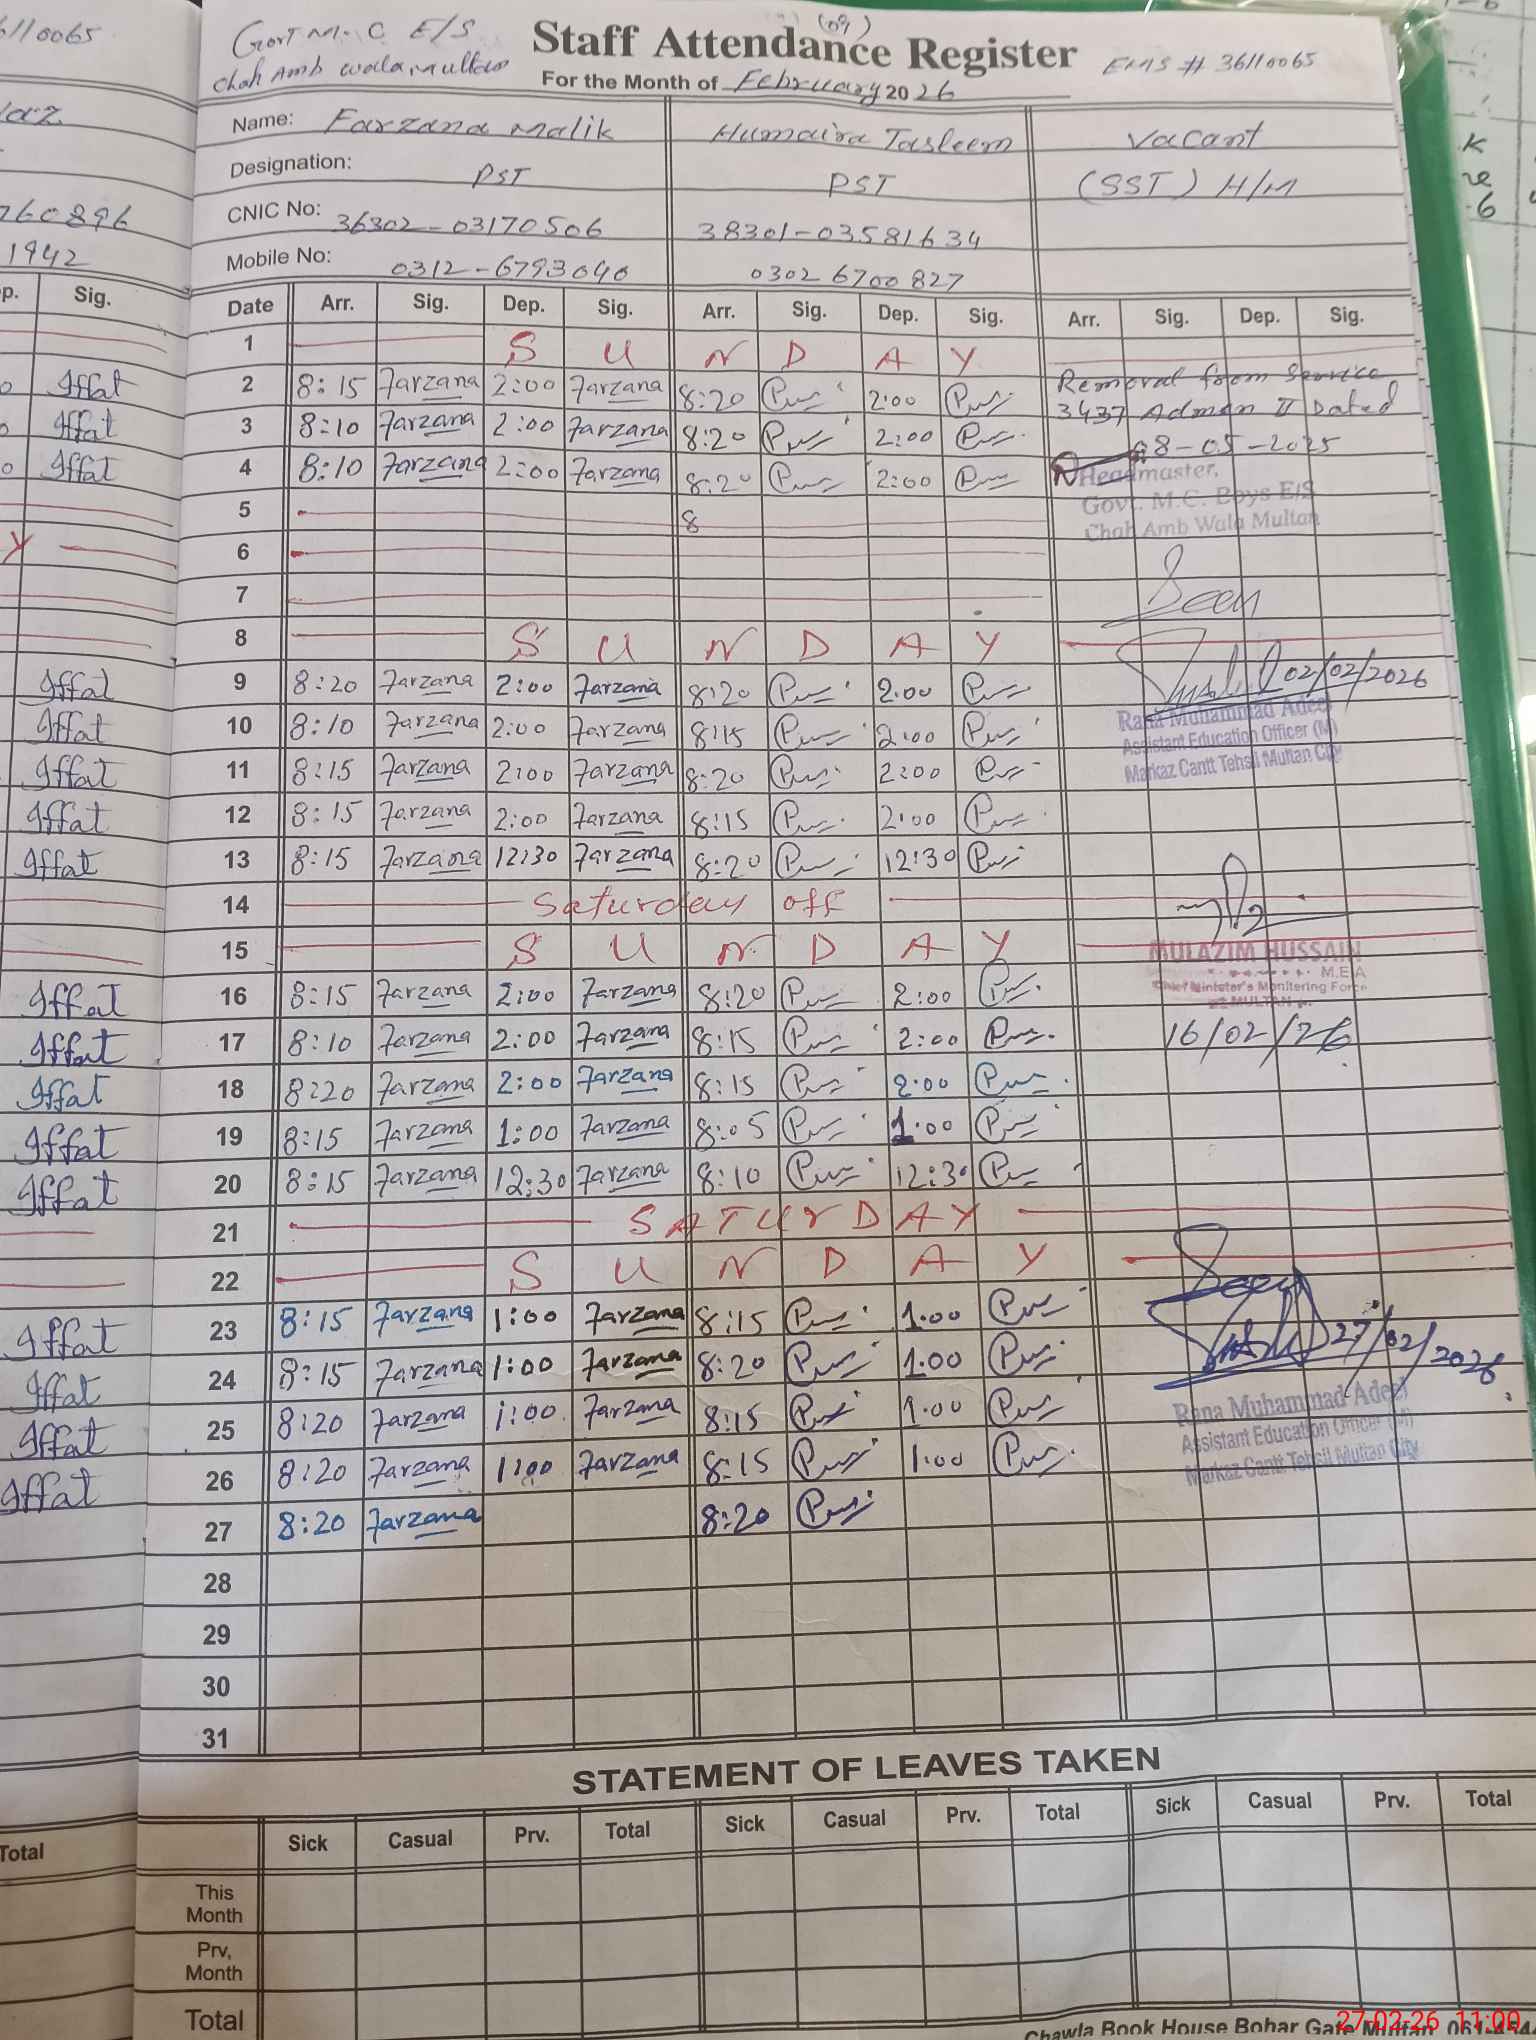 6110065
Govt M.C E/S Staff Attendance Register (09) EMIS # 36110065
Chah Amb wala Multan For the Month of February 2026
Name: Farzana Malik Humaira Tasleem Vacant
Designation: PST PST (SST) H/M
CNIC No: 36302-03170506 38301-03581634
760896
Mobile No: 0312-6793040 0302 6700827
1942
Sig. Date Arr. Sig. Dep. Sig. Arr. Sig. Dep. Sig. Arr. Sig. Dep. Sig.
1 S U N D A Y
Iffat 2 8:15 Farzana 2:00 Farzana 8:20 2:00 Removal from Service
Iffat 3 8:10 Farzana 2:00 Farzana 8:20 2:00 3437 Admen II Dated
08-05-2025
Iffat 4 8:10 Farzana 2:00 Farzana 8:20 2:00 Headmaster,
Govt. M.C. Boys E/S
5 8 Chah Amb Wala Multan
Y 6
7 Seen
8 S U N D A Y
Iffat 9 8:20 Farzana 2:00 Farzana 8:20 2:00 02/02/2026
Iffat 10 8:10 Farzana 2:00 Farzana 8:15 2:00 Rana Muhammad Adeel
Assistant Education Officer (M)
Iffat 11 8:15 Farzana 2:00 Farzana 8:20 2:00 Markaz Cantt Tehsil Multan City
Iffat 12 8:15 Farzana 2:00 Farzana 8:15 2:00
Iffat 13 8:15 Farzana 12:30 Farzana 8:20 12:30
14 Saturday off
15 S U N D A Y MULAZIM HUSSAIN
M.E.A
Iffat 16 8:15 Farzana 2:00 Farzana 8:20 2:00 Chief Minister's Monitering Force
MULTAN
Iffat 17 8:10 Farzana 2:00 Farzana 8:15 2:00 16/02/26
Iffat 18 8:20 Farzana 2:00 Farzana 8:15 2:00
Iffat 19 8:15 Farzana 1:00 Farzana 8:05 1:00
Iffat 20 8:15 Farzana 12:30 Farzana 8:10 12:30
21 SATURDAY
22 S U N D A Y Seen
Iffat 23 8:15 Farzana 1:00 Farzana 8:15 1:00 27/02/2026
Iffat 24 8:15 Farzana 1:00 Farzana 8:20 1:00
Rana Muhammad Adeel
Iffat 25 8:20 Farzana 1:00 Farzana 8:15 1:00 Assistant Education Officer (M)
Iffat 26 8:20 Farzana 1:00 Farzana 8:15 1:00 Markaz Cantt Tehsil Multan City
27 8:20 Farzana 8:20
28
29
30
31
STATEMENT OF LEAVES TAKEN
Total Sick Casual Prv. Total Sick Casual Prv. Total Sick Casual Prv. Total
This
Month
Prv,
Month
Total
Chawla Book House Bohar Gate Multan 061
27-02-26 11:00